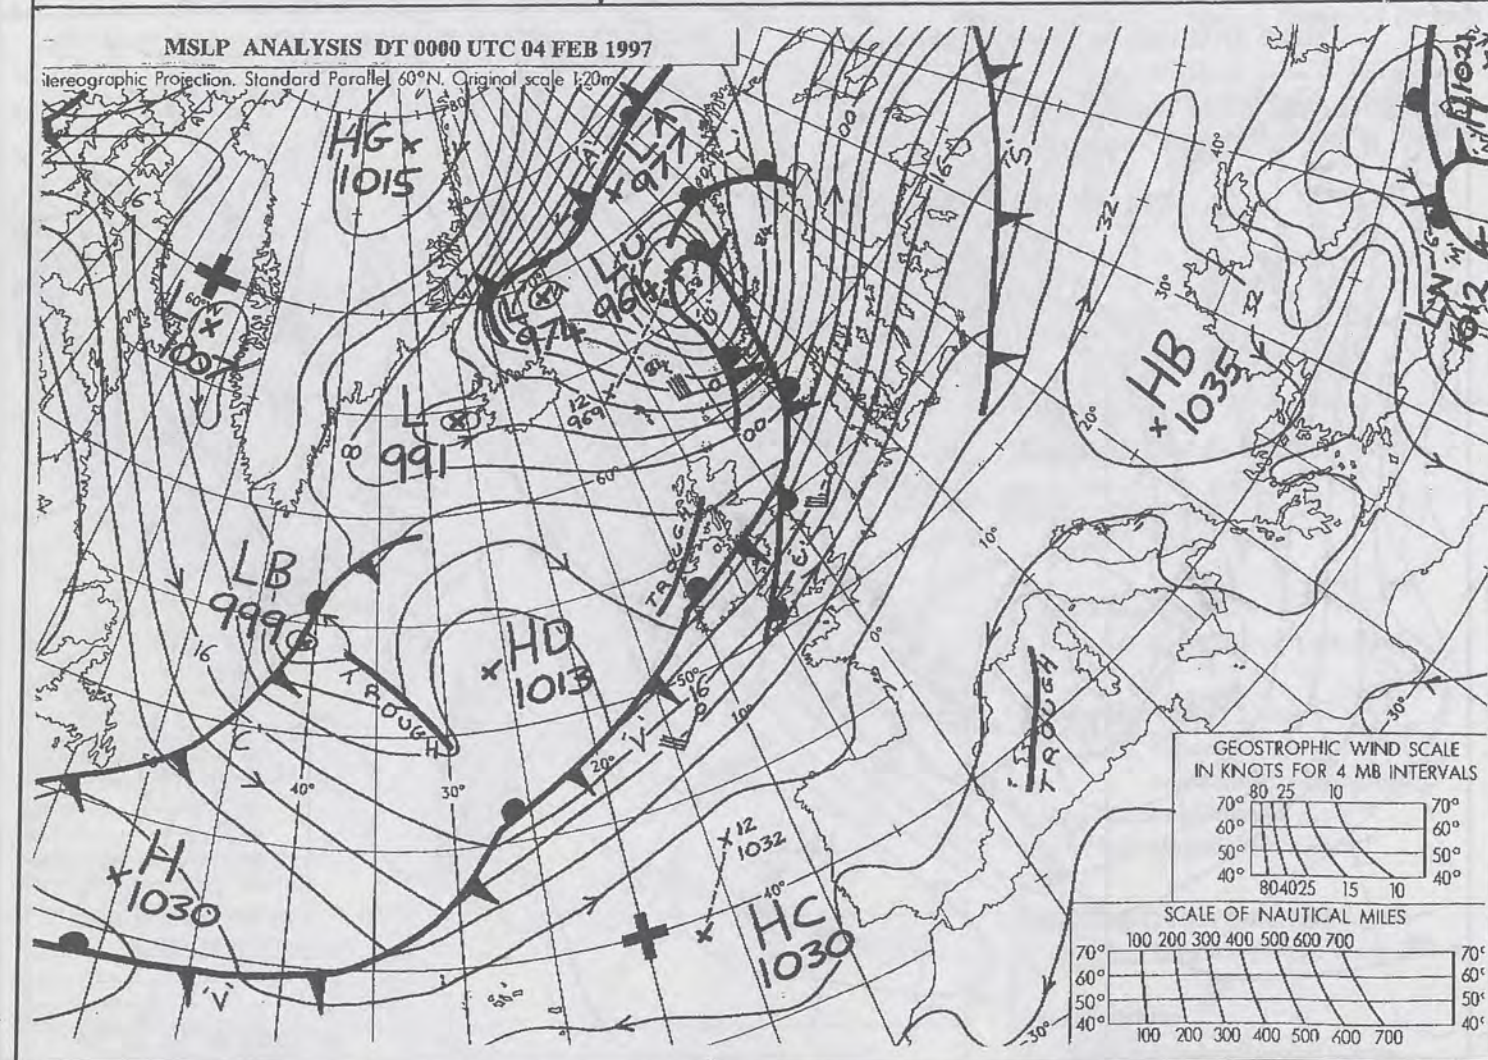 MSLP ANALYSIS DT 0000 UTC 04 FEB 1997
tereographic Projection. Standard Parallel 60°N. Original scale 1:20m
HG
1015
L
977
LU
L
974
60°
L
1007
L
991
8
12
969
60°
00
00
16
'S'
32
32
40°
30°
20°
10°
0°
HB
1035
1021
LN
1012
16
LB
999
16
TROUGH
HD
1013
TROUGH
TROUGH
'V'
50°
16
10°
20°
30°
40°
H
1030
'V'
12
1032
40°
HC
1030
30°
30°
GEOSTROPHIC WIND SCALE
IN KNOTS FOR 4 MB INTERVALS
80 25 10
70° 70°
60° 60°
50° 50°
40° 40°
80 40 25 15 10
SCALE OF NAUTICAL MILES
100 200 300 400 500 600 700
70° 70°
60° 60°
50° 50°
40° 40°
100 200 300 400 500 600 700